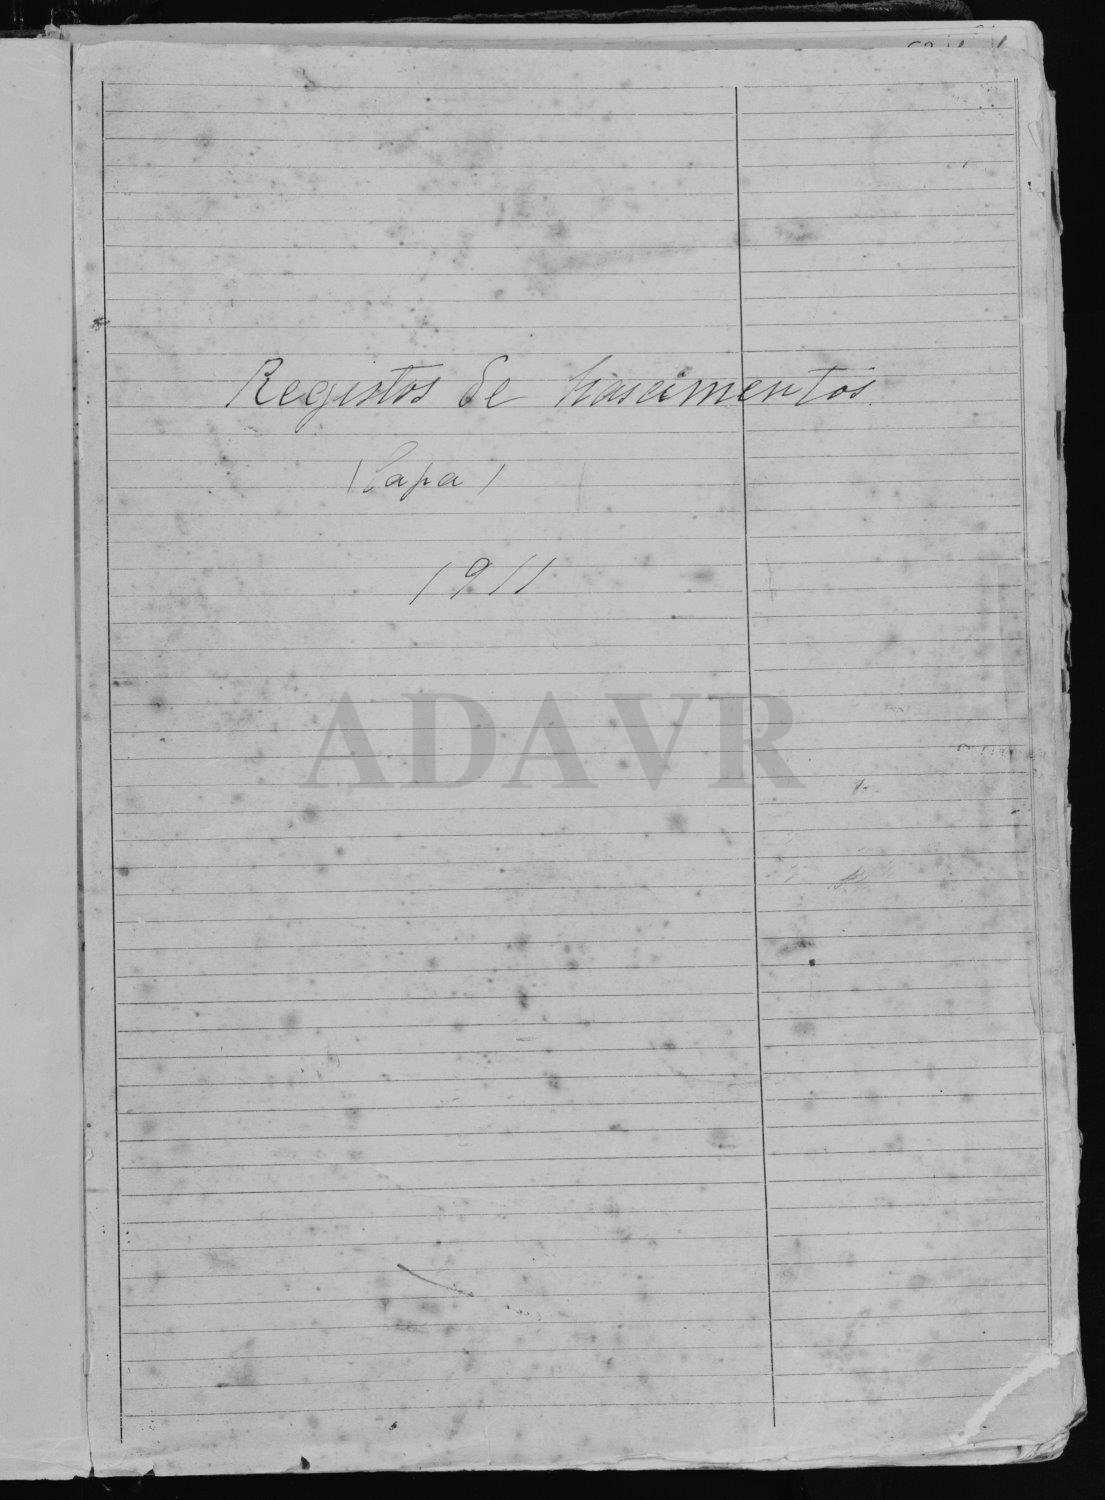 Registos de Nascimentos
(Capa)
1911
ADAVR